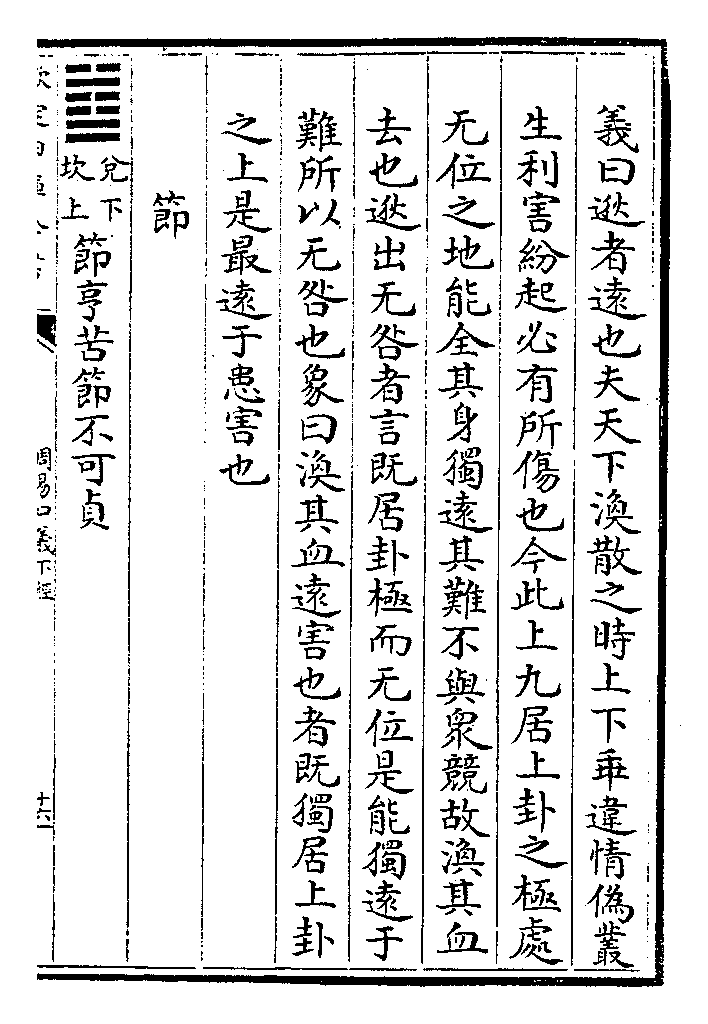 義曰逖者遠也夫天下渙散之時上下乖違情偽叢
生利害紛起必有所傷也今此上九居上卦之極處
无位之地能全其身獨遠其難不與衆競故渙其血
去也逖出无咎者言既居卦極而无位是能獨遠于
難所以无咎也象曰渙其血遠害也者既獨居上卦
之上是最遠于患害也
節
䷻
兌下
坎上
節亨苦節不可貞
周易口義下經
十六